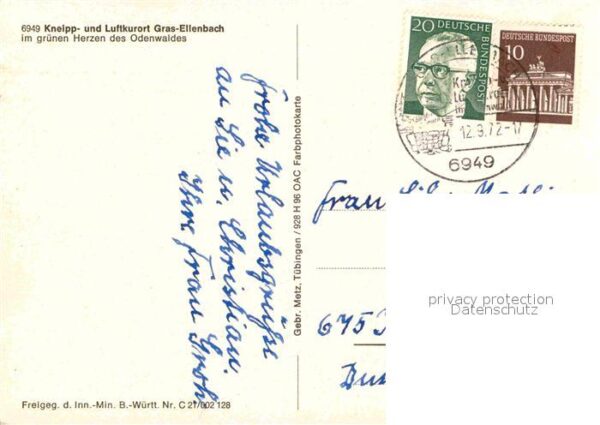 6949 Kneipp- und Luftkurort Gras-Ellenbach
im grünen Herzen des Odenwaldes
frohe Urlaubsgrüße
an Sie u. Christian.
Ihre Frau Groh
Freigeg. d. Inn.-Min. B.-Württ. Nr. C 21/002 128
Gebr. Metz, Tübingen / 928 H 96 OAC Farbphotokarte
20
DEUTSCHE BUNDESPOST
DEUTSCHE BUNDESPOST
10
12.9.72-17
6949
Frau
675
privacy protection
Datenschutz